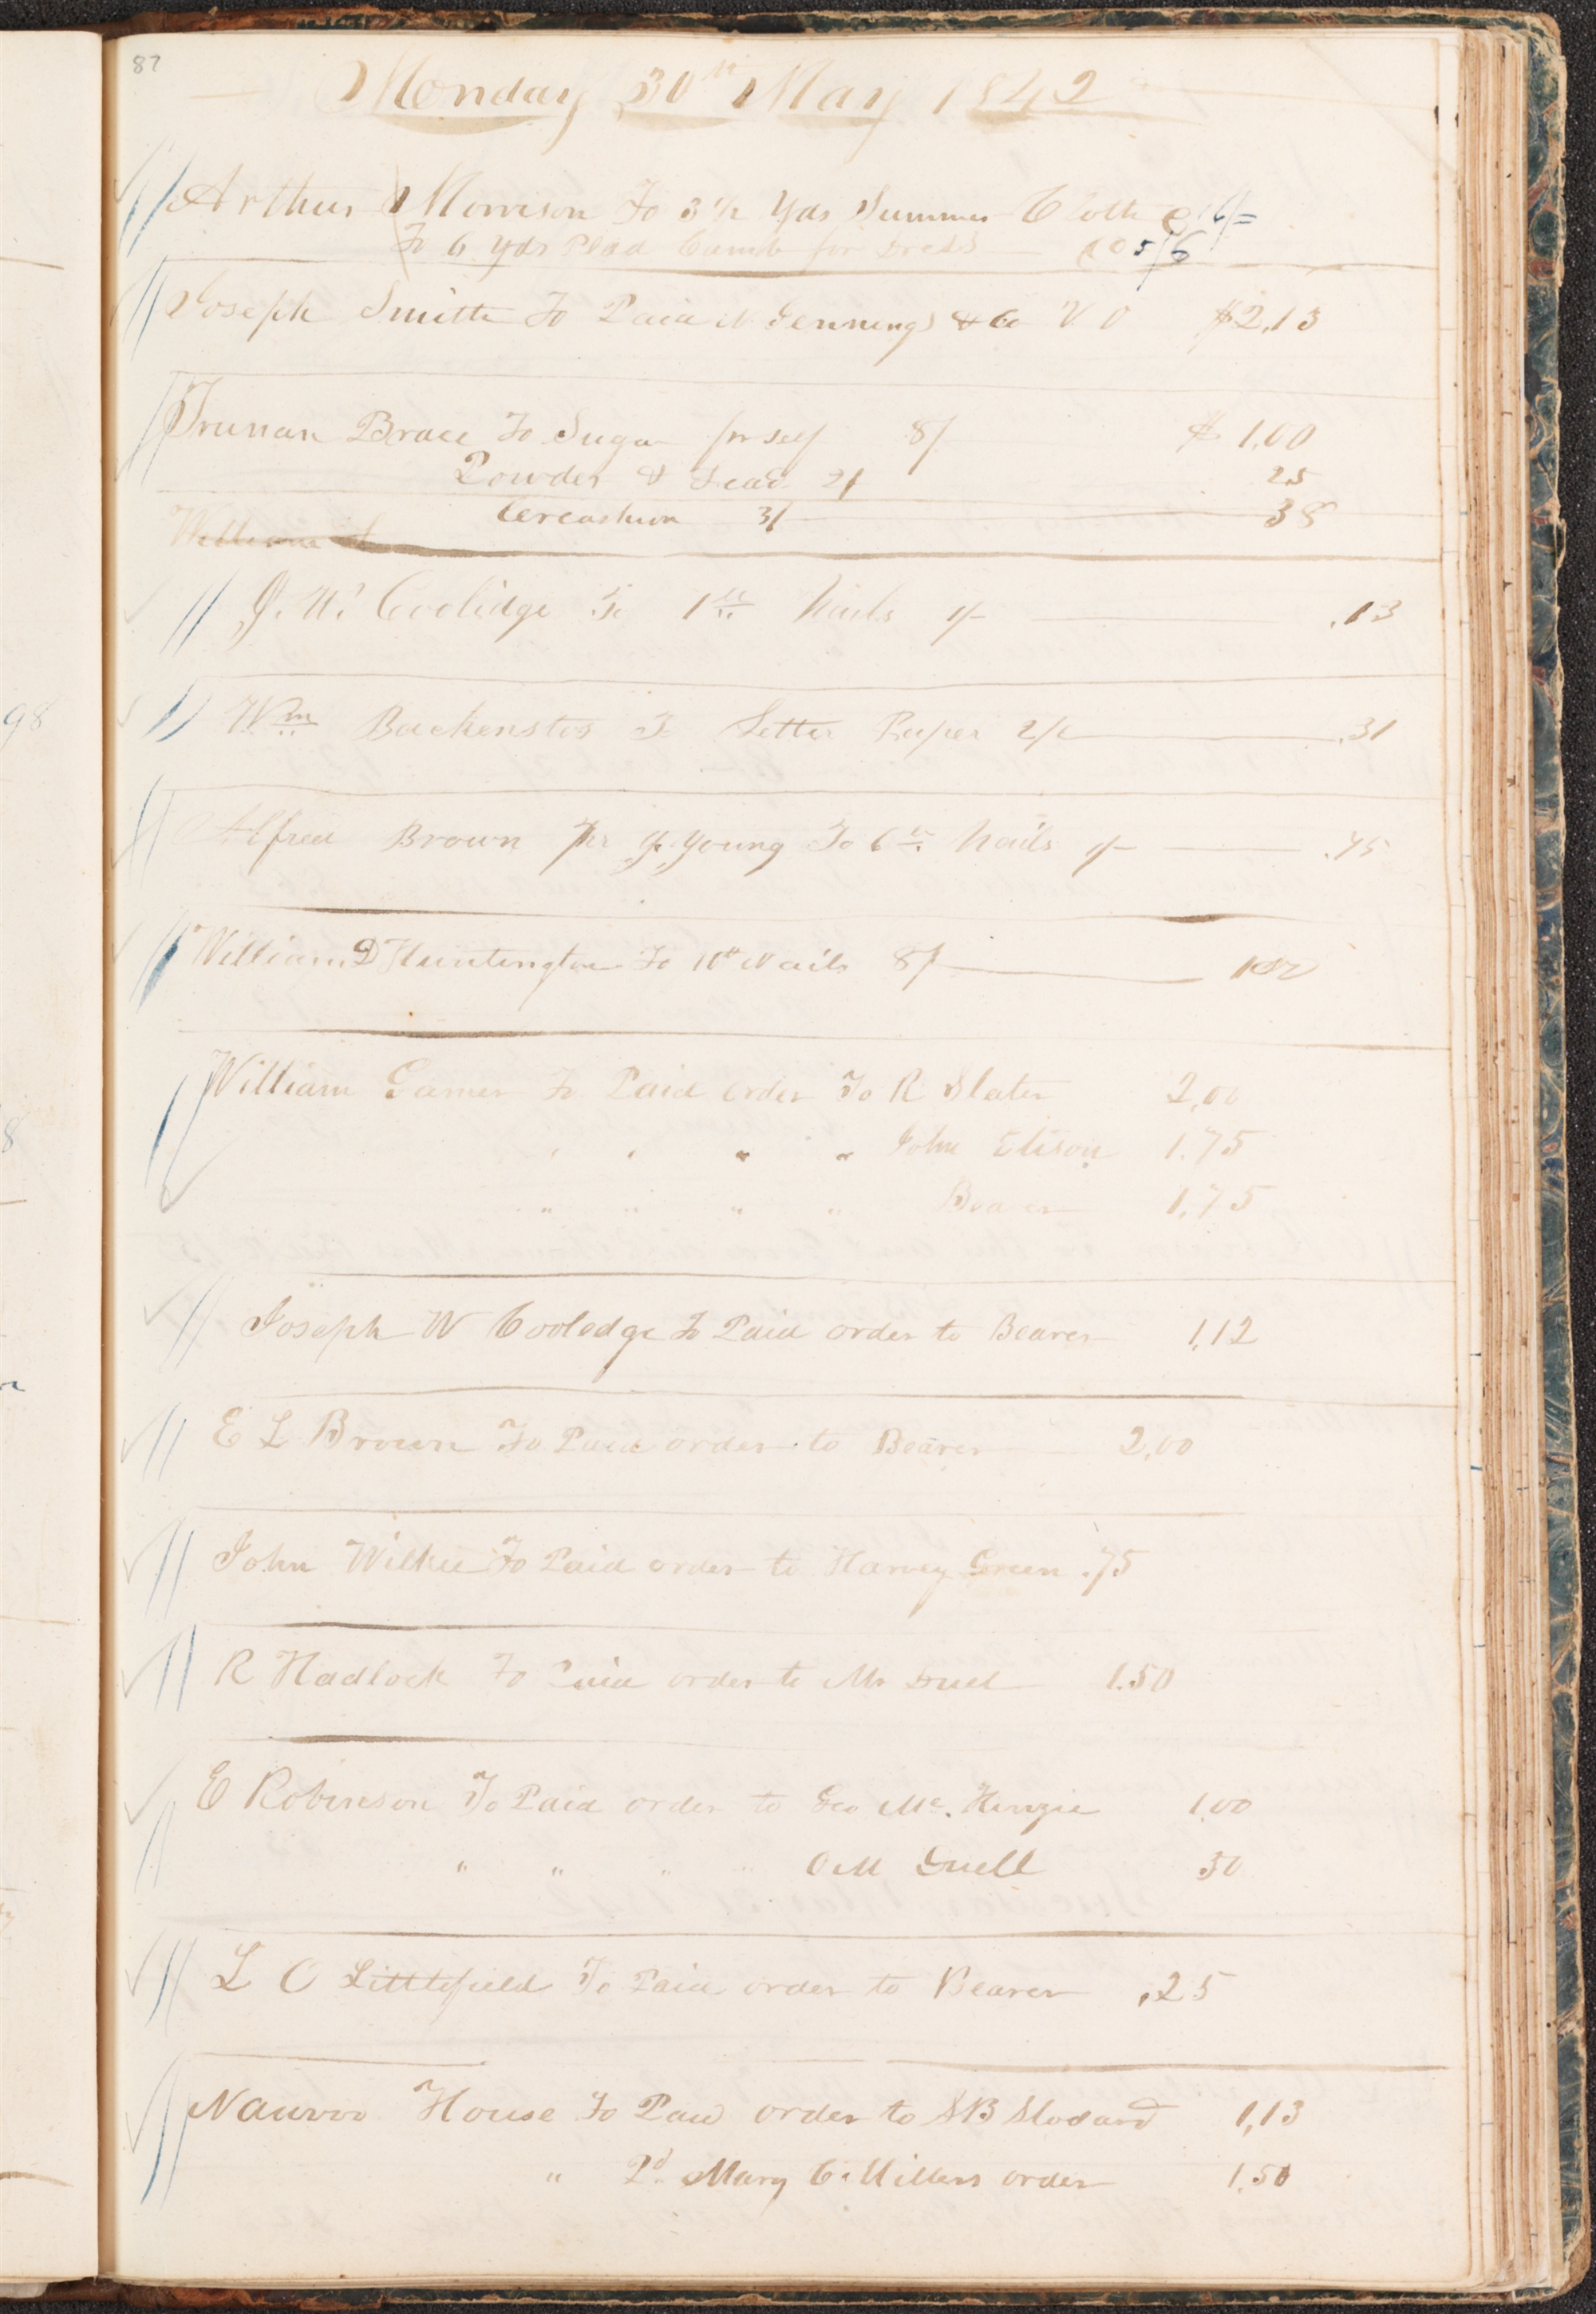 87
Monday 30th May 1842
Arthur Morrison To 3 1/2 Yds Summer Cloth @ 6/=
To 6 yds Plad Camb for Dress @ 5/6
Joseph Smith To Paid N Jennings & Co V O $2,13
Truman Brace To Sugar for self 8/ $ 1,00
Powder & Lead 2/ 25
Cercashion 3/ 38
William
J. W. Coolidge To 1 lb Nails 1/ .13
Wm Backenstos To Letter Paper 2/6 .31
Alfred Brown Pr J. Young To 6 lb Nails 1/ .75
William D Huntington To Nails 8/ 1.00
William Garner To Paid order To R Slater 2,00
" " " " John Elison 1.75
" " " " Bearer 1,75
Joseph W Cooledge To Paid order to Bearer 1,12
E L Brown To Paid order to Bearer 2,00
John Wilkie To Paid order to Harvey Green .75
R Hadlock To Paid order to Mr Duel 1.50
E Robinson To Paid order to Geo Mc. Kenzie 1,00
" " " " O M Duell 50
L O Littlefield To Paid order to Bearer ,25
Nauvoo House To Paid order to S B Stodard 1,13
" Pd Mary C. Millers order 1.50
98
8